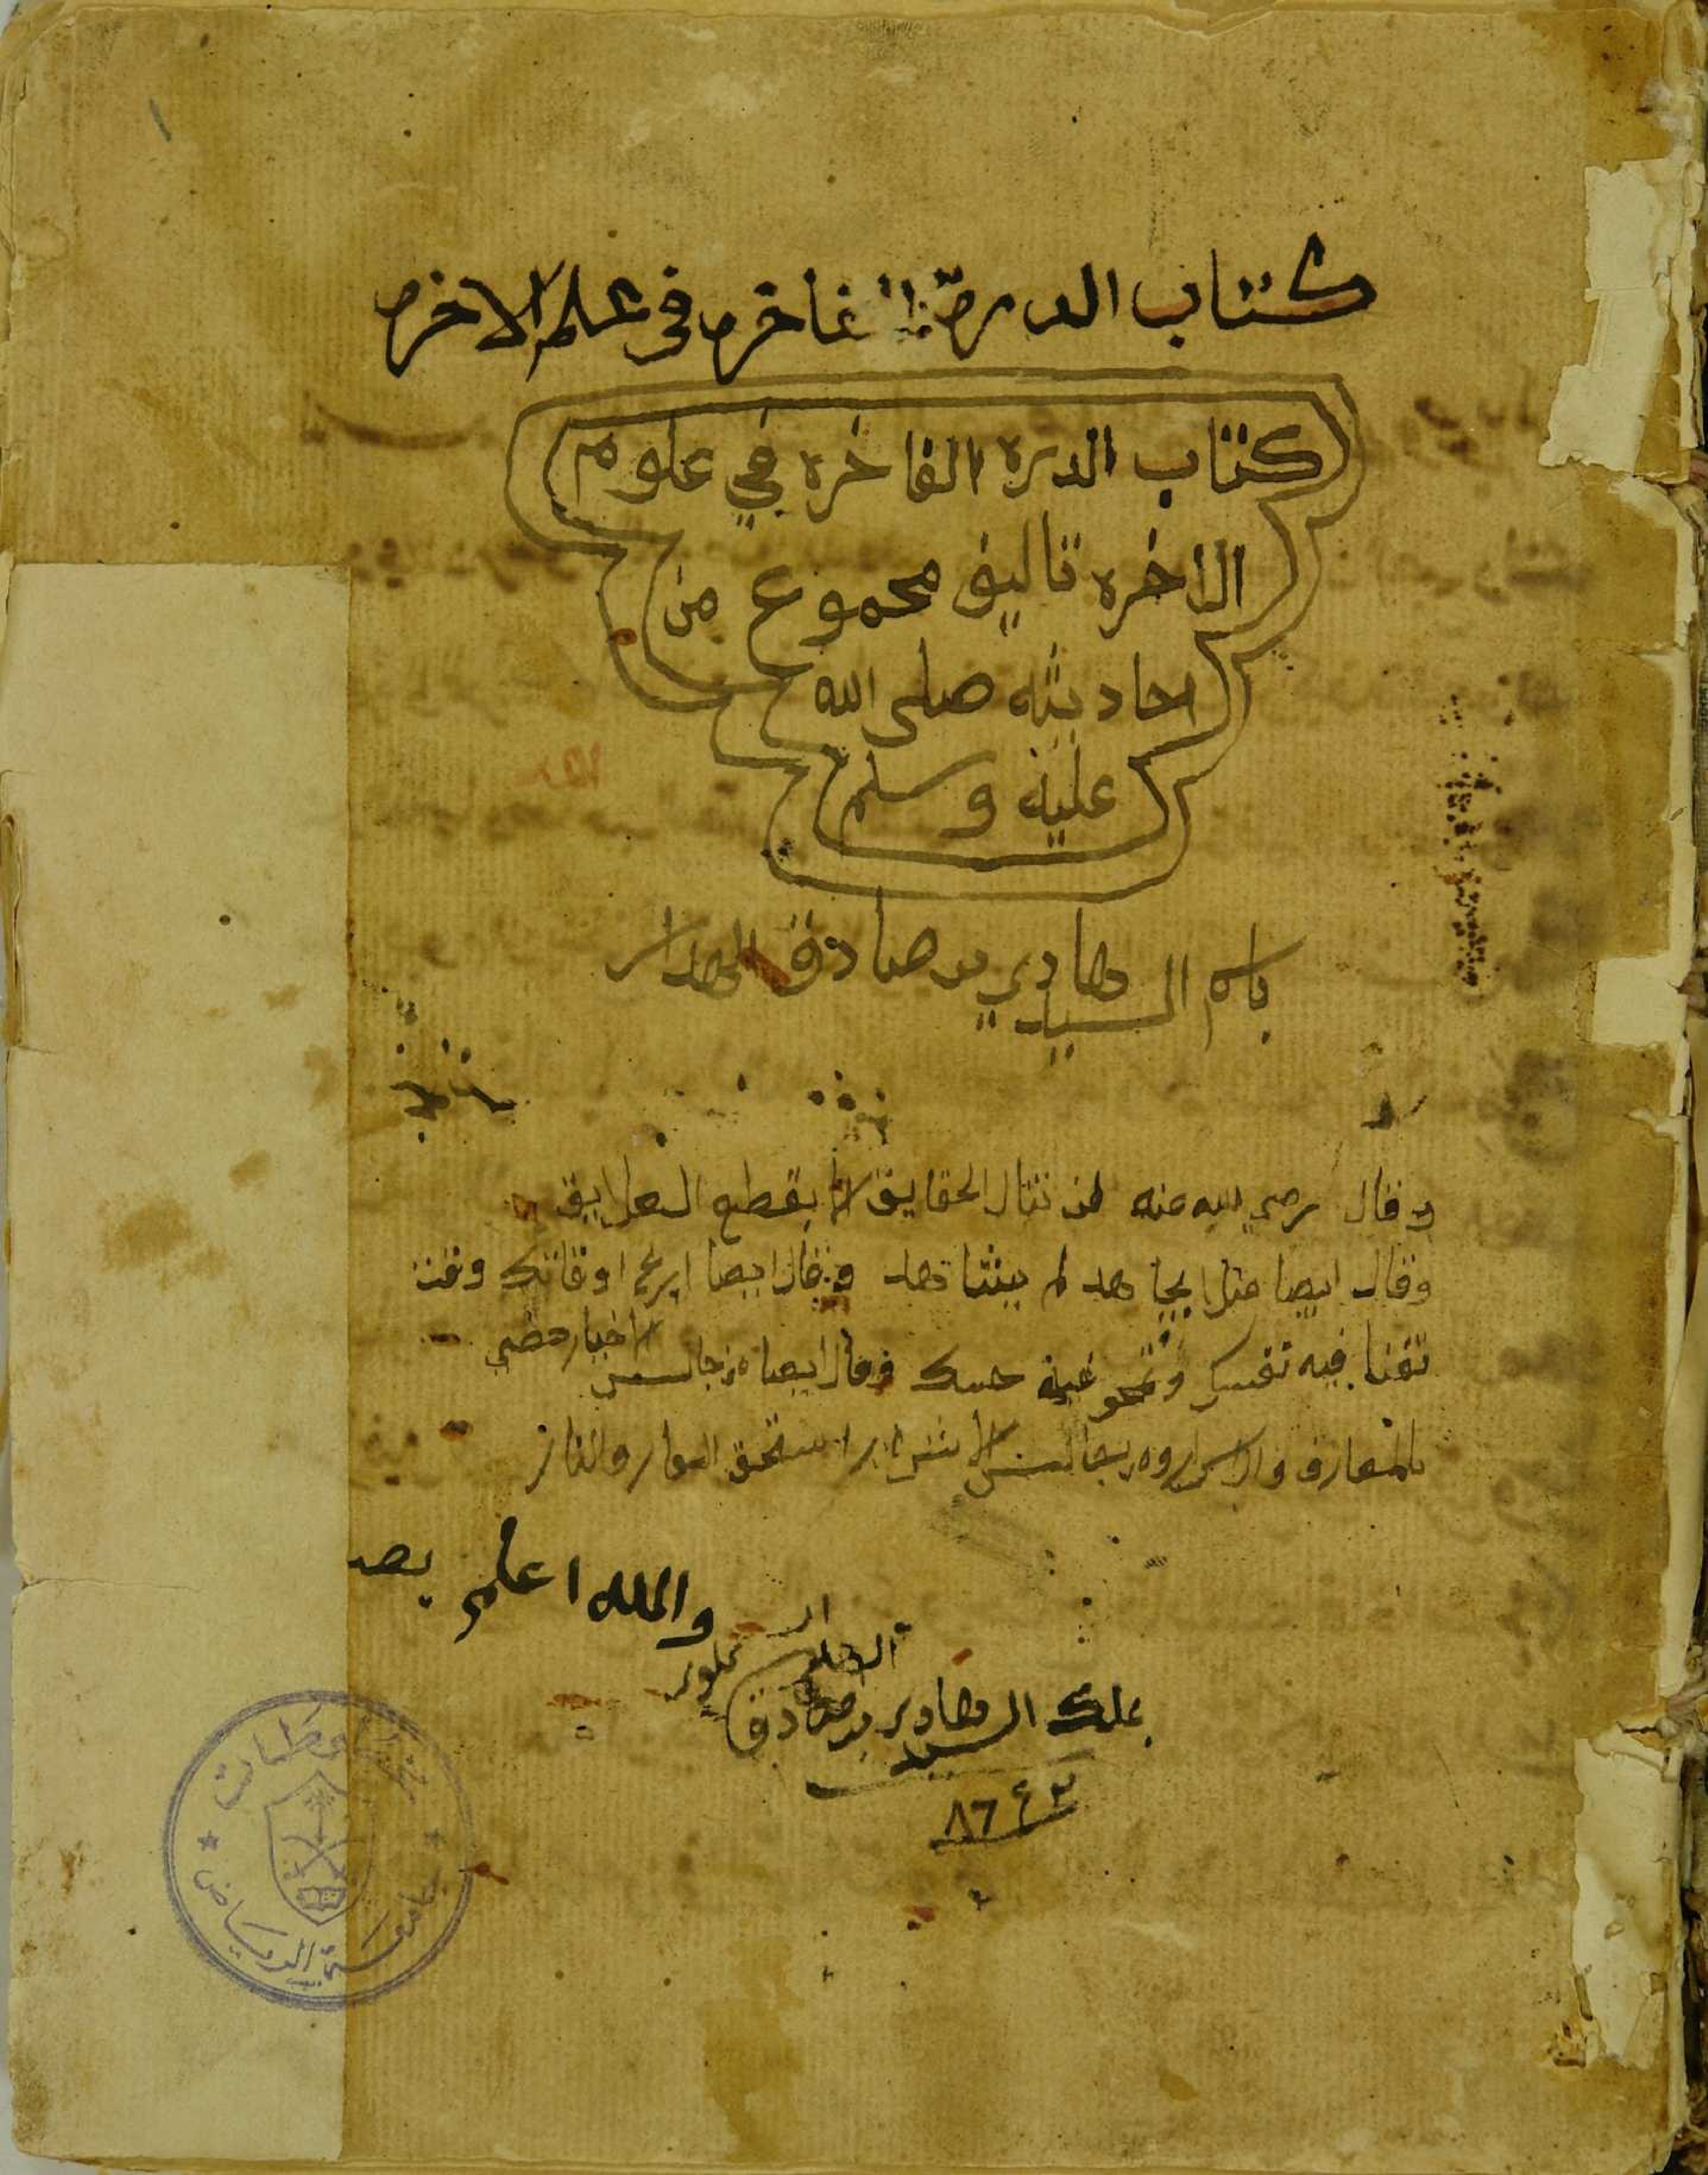 كتاب الدرة الفاخره في علم الاخره
كتاب الدره الفاخره في علوم
الاخره تاليف مجموع من
احاديثه صلى الله
عليه وسلم
باسم السيد هادي بن صادق
وقال رضي الله عنه لن تنال الحقايق الا بقطع العلايق
وقال ايضا من لم يجاهد لم يشاهد وقال ايضا اوقاتك وقت
تفنا فيه نفسك وقال ايضا من جالس الاخيار حضي
بالمعارف والاسرار ومن جالس الاشرار استحق العار والنار
والله اعلم
بملك السيد هادي بن صادق
٨٦٤٢
مخطوطات
جامعة الرياض